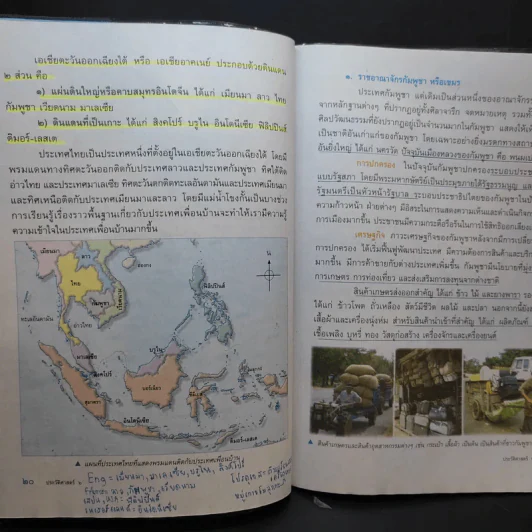 เอเชียตะวันออกเฉียงใต้ หรือ เอเชียอาคเนย์ ประกอบด้วยดินแดน
๒ ส่วน คือ
๑) แผ่นดินใหญ่หรือคาบสมุทรอินโดจีน ได้แก่ เมียนมา ลาว ไทย
กัมพูชา เวียดนาม มาเลเซีย
๒) ดินแดนที่เป็นเกาะ ได้แก่ สิงคโปร์ บรูไน อินโดนีเซีย ฟิลิปปินส์
ติมอร์-เลสเต
ประเทศไทยเป็นประเทศหนึ่งที่ตั้งอยู่ในเอเชียตะวันออกเฉียงใต้ โดยมี
พรมแดนทางทิศตะวันออกติดกับประเทศลาวและประเทศกัมพูชา ทิศใต้ติด
อ่าวไทย และประเทศมาเลเซีย ทิศตะวันตกติดทะเลอันดามันและประเทศเมียนมา
และทิศเหนือติดกับประเทศเมียนมาและลาว โดยมีแม่น้ำโขงกั้นเป็นบางช่วง
การเรียนรู้เรื่องราวพื้นฐานเกี่ยวกับประเทศเพื่อนบ้านจะทำให้เรามีความรู้
ความเข้าใจในประเทศเพื่อนบ้านมากขึ้น
เมียนมา
ลาว
ไทย
กัมพูชา
เวียดนาม
ฟิลิปปินส์
ทะเลอันดามัน
อ่าวไทย
มาเลเซีย
บรูไน
สิงคโปร์
อินโดนีเซีย
ติมอร์-เลสเต
▲ แผนที่ประเทศไทยที่แสดงพรมแดนติดกับประเทศเพื่อนบ้าน
๒๐ ประวัติศาสตร์
Eng = เมียนมา, มาเลเซีย, บรูไน, สิงคโปร์
ฝรั่งเศส = ลาว, กัมพูชา, เวียดนาม
สเปน, = ฟิลิปปินส์
เนเธอร์แลนด์ = อินโดนีเซีย
๑. ราชอาณาจักรกัมพูชา หรือเขมร
ประเทศกัมพูชา แต่เดิมเป็นส่วนหนึ่งของอาณาจักร
จากหลักฐานต่างๆ ที่ปรากฏอยู่ทั้งศิลาจารึก จดหมายเหตุ รวมทั้ง
ศิลปวัฒนธรรมที่ยังปรากฏอยู่เป็นจำนวนมากในกัมพูชา แสดงให้
เป็นชาติอันเก่าแก่ของกัมพูชา โดยเฉพาะอย่างยิ่งมรดกทางสถา
อันยิ่งใหญ่ ได้แก่ นครวัด ปัจจุบันเมืองหลวงของกัมพูชา คือ พนมเ
การปกครอง ในปัจจุบันกัมพูชาปกครองระบอบประชา
แบบรัฐสภา โดยมีพระมหากษัตริย์เป็นประมุขภายใต้รัฐธรรมนูญ
รัฐมนตรีเป็นหัวหน้ารัฐบาล ระบอบประชาธิปไตยของกัมพูชาในปัจจุ
ความก้าวหน้า ฝ่ายต่างๆ มีอิสระในการแสดงความเห็นและดำเนินกิจ
การเมืองมากขึ้น ประชาชนมีความกระตือรือร้นในการใช้สิทธิออกเสียง
เศรษฐกิจ ภาวะเศรษฐกิจของกัมพูชาหลังจากมีการเปลี่ยน
การปกครอง ได้เริ่มฟื้นฟูพัฒนาประเทศ มีความต้องการสินค้าและบริการ
มากขึ้น มีการค้าขายกับต่างประเทศเพิ่มขึ้น กัมพูชามีนโยบายที่มุ่ง
การเกษตร การท่องเที่ยว และส่งเสริมการลงทุนจากต่างชาติ
สินค้าเกษตรส่งออกสำคัญ ได้แก่ ข้าว ไม้ และยางพารา
ได้แก่ ข้าวโพด ถั่วเหลือง สัตว์มีชีวิต ผลไม้ และปลา นอกจากนี้ยัง
เสื้อผ้าและเครื่องนุ่งห่ม สำหรับสินค้านำเข้าที่สำคัญ ได้แก่ ผลิตภัณฑ์
เชื้อเพลิง บุหรี่ ทอง วัสดุก่อสร้าง เครื่องจักรและเครื่องยนต์